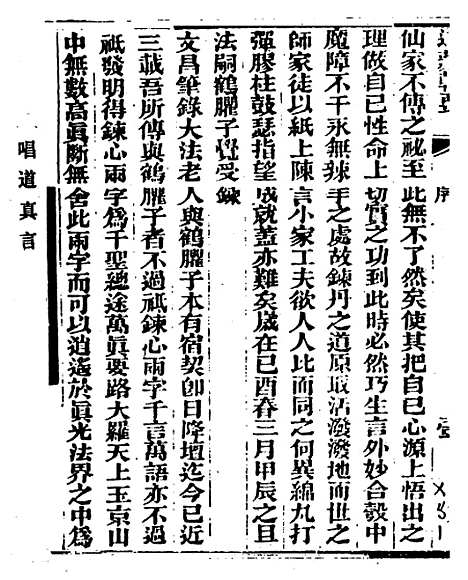 序
仙家不傳之祕至此無不了然矣使其把自已心源上悟出之
理做自已性命上切實之功到此時必然巧生言外妙合彀中
魔障不干永無辣手之處故鍊丹之道原取活潑潑地而世之
師家徒以紙上陳言小家工夫欲人人比而同之何異綿九打
彈膠柱鼓瑟指望成就蓋亦難矣歲在已酉春三月甲辰之旦
法嗣鶴臞子覺受錄
文昌筆錄大法老人與鶴臞子本有宿契卽日降壇迄今已近
三載吾所傳與鶴臞子者不過祇鍊心兩字千言萬語亦不過
祇發明得鍊心兩字爲千聖總途萬眞要路大羅天上玉京山
中無數高眞斷無舍此兩字而可以逍遙於眞光法界之中爲
唱道真言